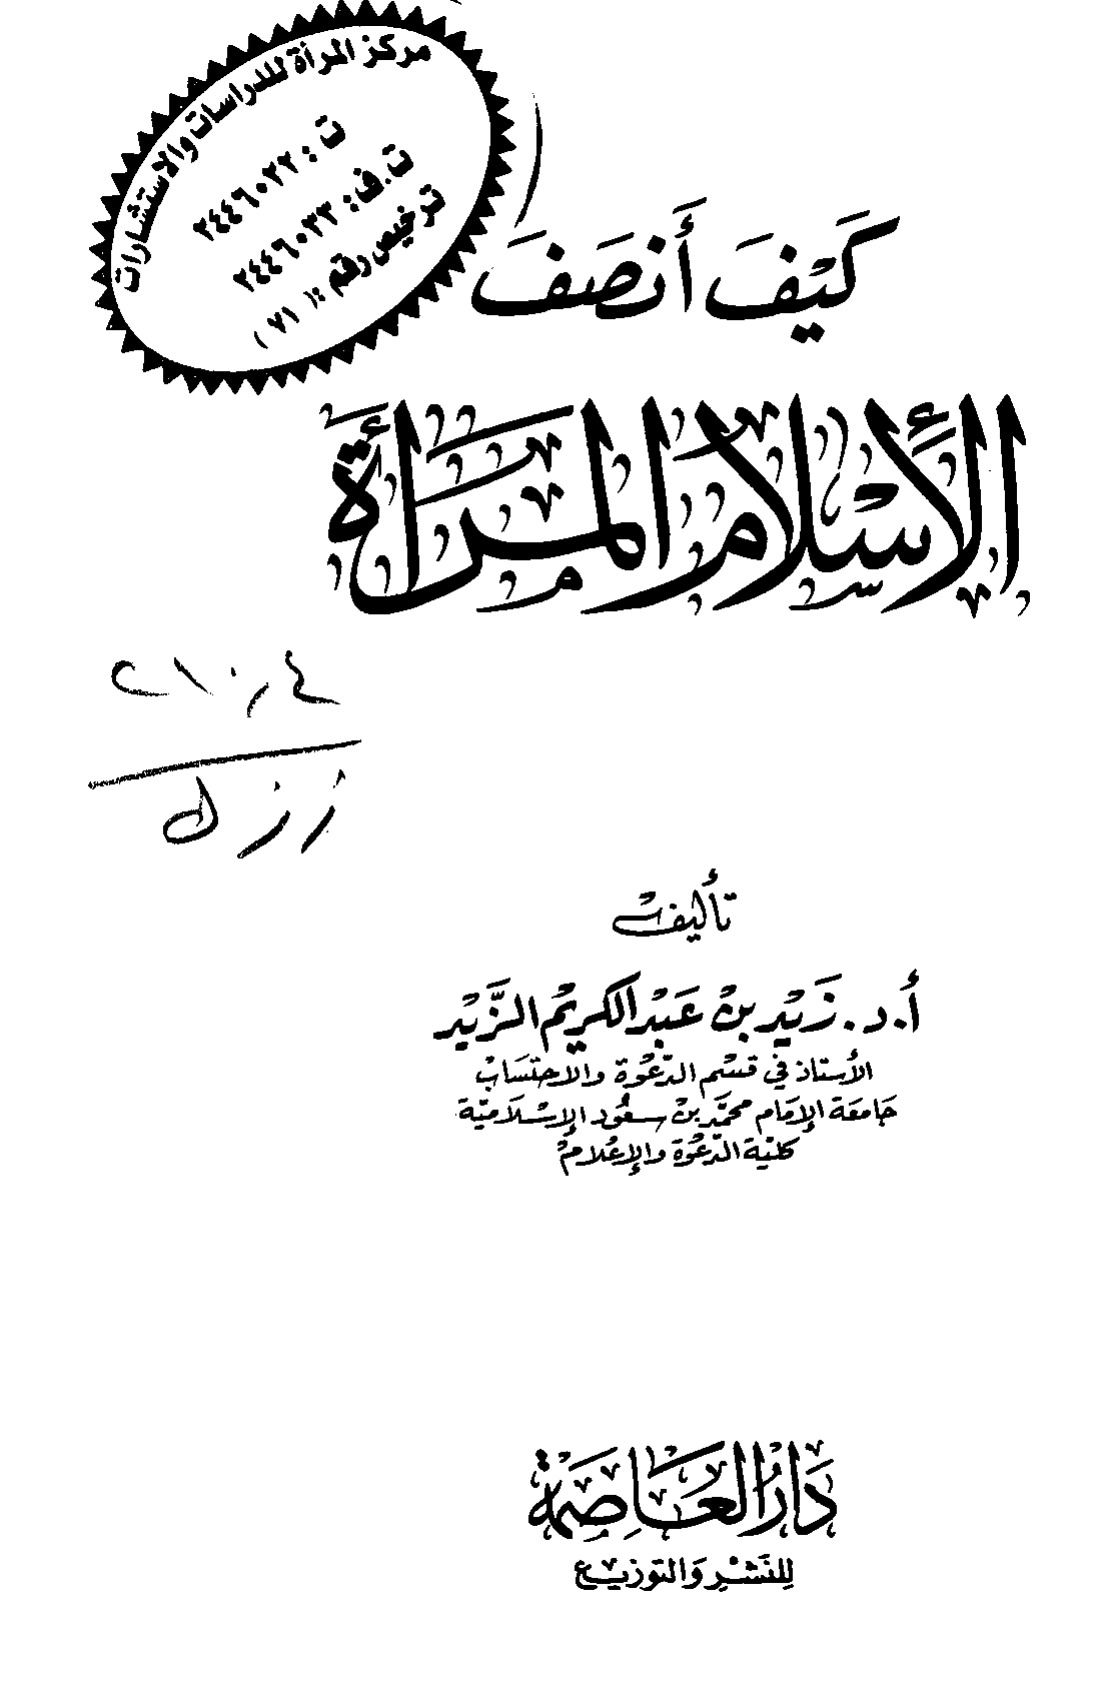 مركز المرأة للدراسات والاستشارات
ت : ٢٤٤٦٠٢٢
ت.ف: ٢٤٤٦٠٣٣
ترخيص رقم :( ٧١ )
كَيْفَ أَنصَفَ
الإِسْلَامُ المَرْأَةَ
٢١٠,٤
ز ز ك
تأليف
أ.د. زَيْد بنْ عَبْد الكريمْ الزَّيْد
الأستاذ في قسْم الدّعْوة والاحتسَابْ
جَامعَة الإمَام محمَّد بنْ سعُود الإسْلَاميّة
كليّة الدّعْوة والإعْلامْ
دَارُ العَاصِمَة
لِلنَشْرِ وَالتوزيْع